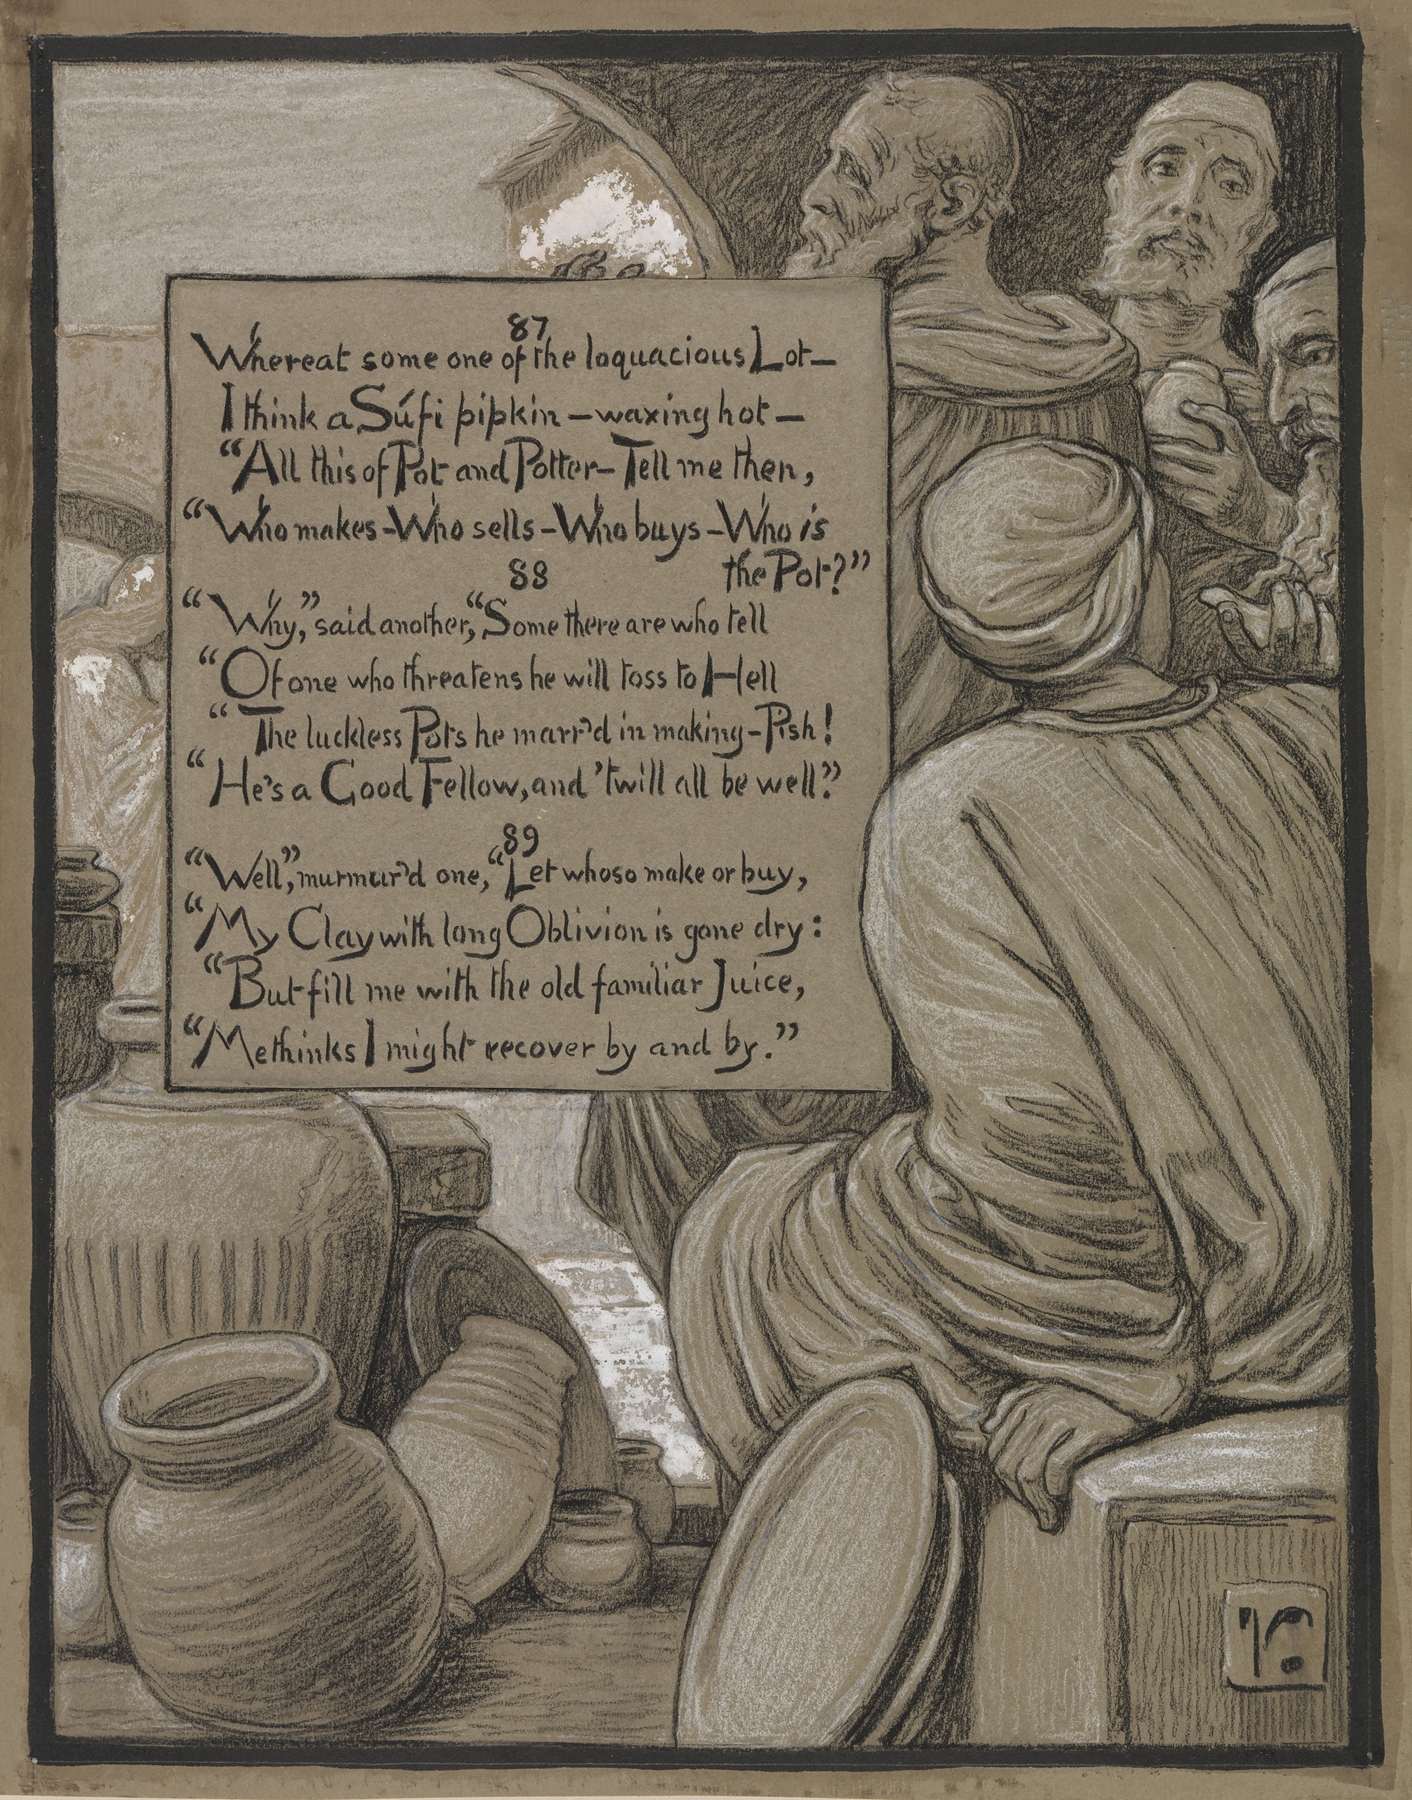 87
Whereat some one of the loquacious Lot—
I think a Súfi pipkin — waxing hot —
“All this of Pot and Potter— Tell me then,
“Who makes - Who sells - Who buys - Who is
the Pot?”
88
“Why,” said another, “Some there are who tell
“Of one who threatens he will toss to Hell
“The luckless Pots he marr'd in making - Pish!
“He's a Good Fellow, and 'twill all be well.”
89
“Well,” murmur'd one, “Let whoso make or buy,
“My Clay with long Oblivion is gone dry:
“But fill me with the old familiar Juice,
“Methinks I might recover by and by.”